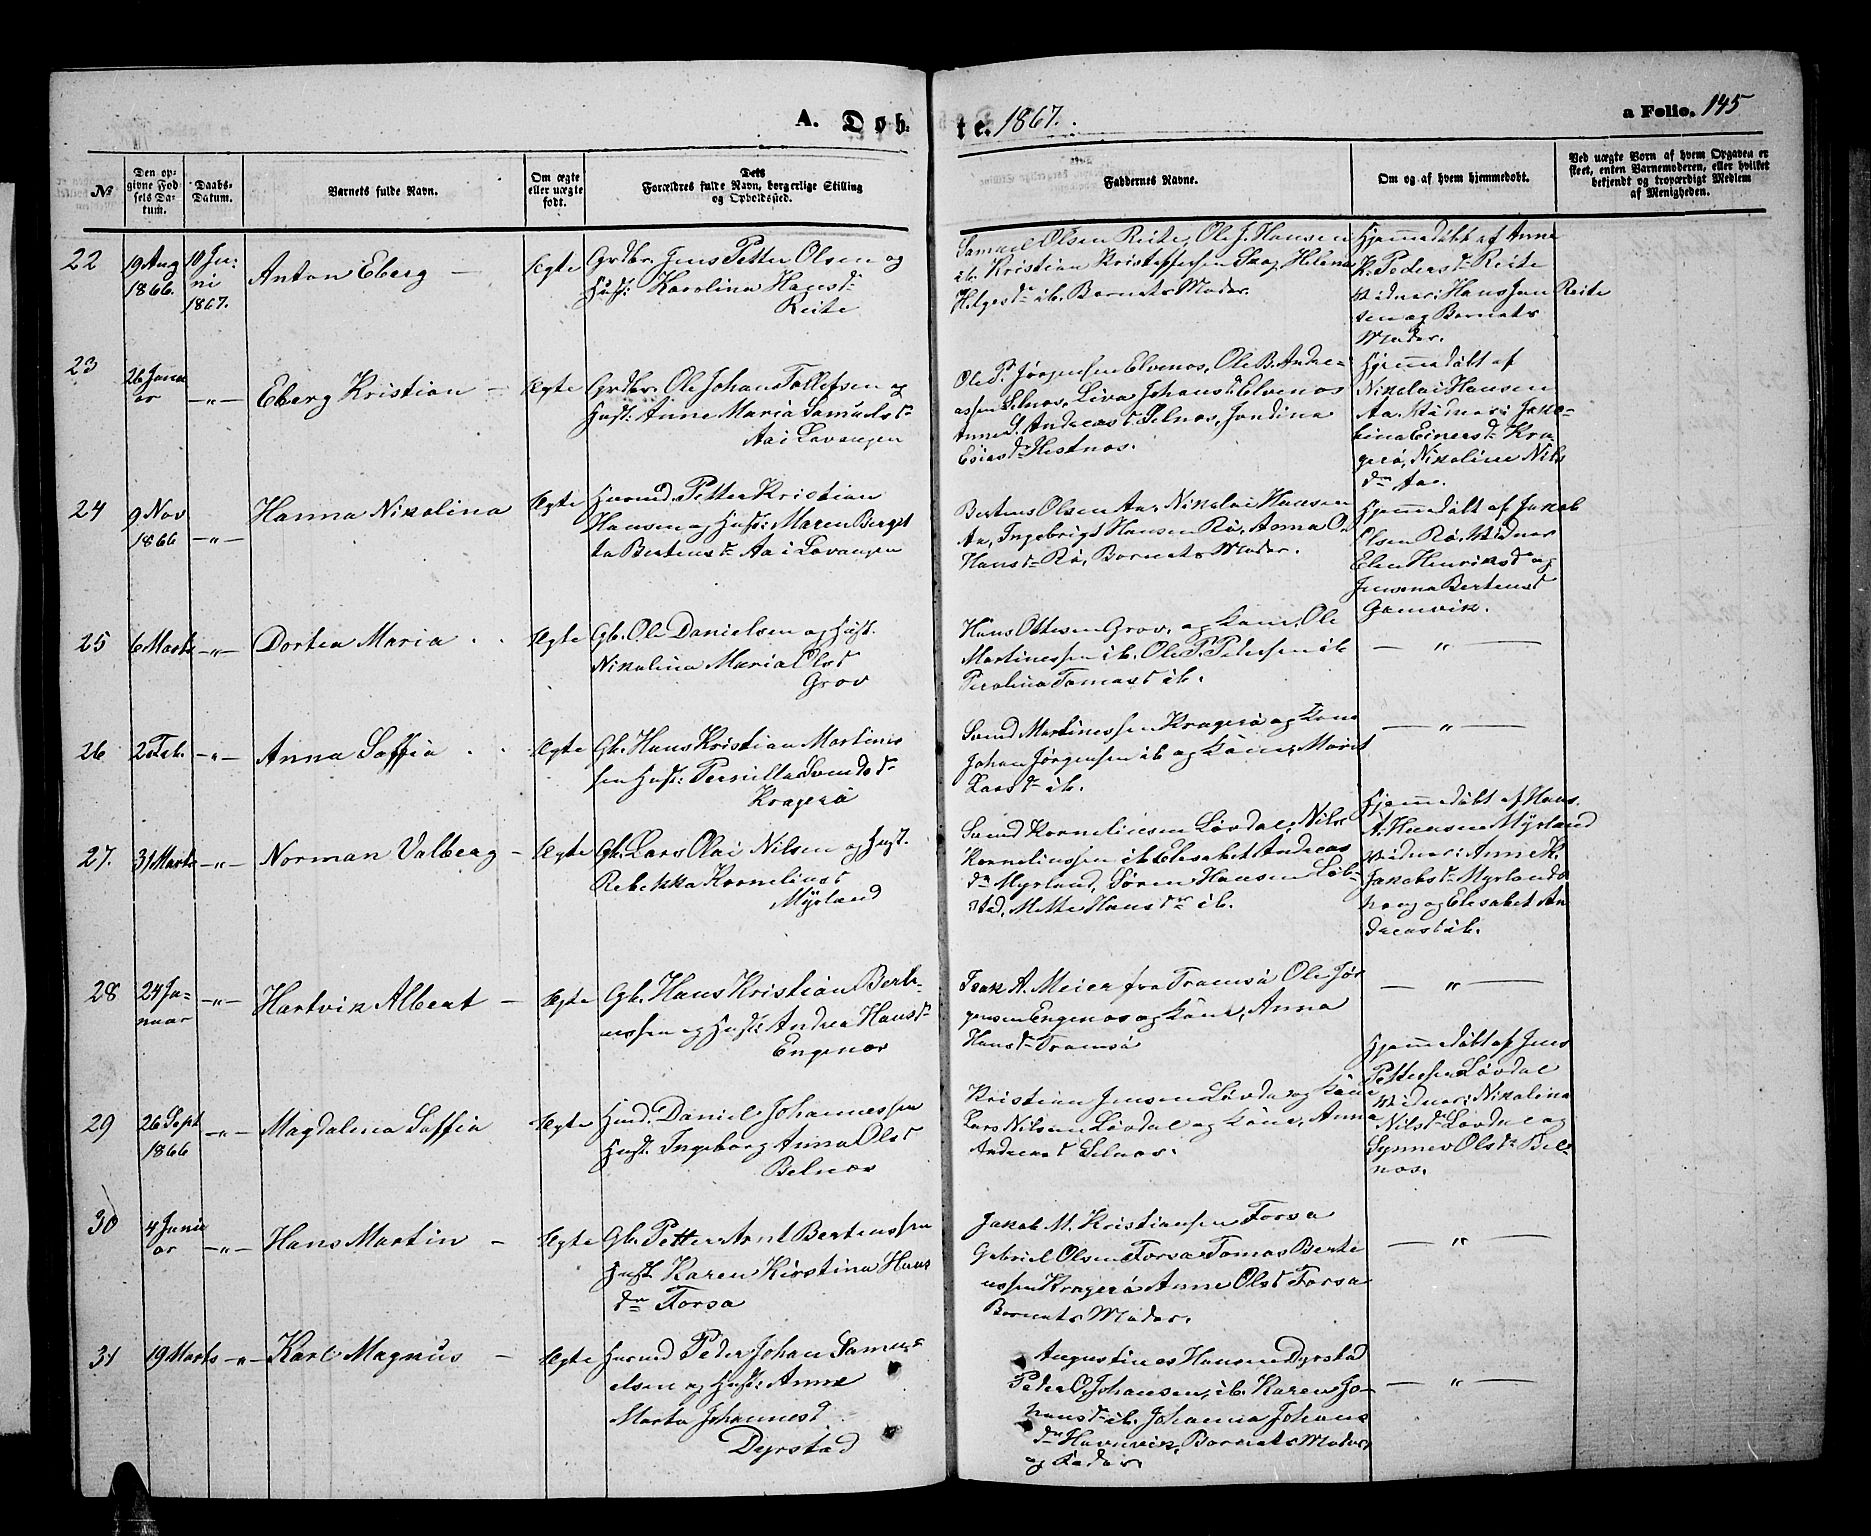 A. Døb-
te. 1867.
a Folio. 145
№
Den op-
givne Fød-
sels Da-
tum.
Daabs-
Datum.
Barnets fulde Navn.
Om ægte
eller uægte
født.
Dets
Forældres fulde Navn, borgerlige Stilling
og Opholdssted.
Faddernes Navne.
Om og af hvem hjemmedøbt.
Ved uægte Børn af hvem Opgaven er
skeet, enten Barnemoderen, eller hvilket
bekjendt og troværdigt Medlem
af Menigheden.
22
19 Aug
1866.
10 Ju-
ni
1867.
Anton Eberg —
Ægte
Grdbr. Jens Petter Olsen og
Hust: Karolina Hansdr
Reite
Samuel Olsen Reite, Ole J. Hansen
ib. Kristian Kristoffersen Skog, Helena
Helgesdr ib. Barnets Moder.
Hjemmedøbt af Anne
K. Pedersdr Reite
Vidner: Hans Jen Reite
sen og Barnets
Moder.
23
26 Janu
ar
—„—
Eberg Kristian —
Ægte
Grdbr. Ole Johans Tollefsen og
Hust: Anne Maria Samuelsdr
Aa i Lavangen
Ole P. Jørgensen Elvenes, Ole B. Andre-
assen Selnes, Liva Johansdr Elvenes
Anne S. Andreasdr Selnes, Jondina
Esiasdr Hestnes.
Hjemmedøbt af
Nikolai Hansen
Aa. Vidner: Jako-
bina Einersdr Kra-
gerø, Nikoline Nils
dr Aa.
24
9 Nov
1866
—„—
Hanna Nikolina
Ægte
Huusmd. Petter Kristian
Hansen og Hust: Maren Berget
ta Bertensdr Aa i Lavangen
Bertens Olsen Aa, Nikolai Hansen
Aa, Ingebrigt Hansen Rø, Anna O.
Hansdr Rø, Barnets Moder.
Hjemmedøbt af Jakob
Olsen Rø, Vidner
Elen Henriksdr og
Jensena Bertensdr
Gamvik.
25
6 Marts
—„—
Dortea Maria
Ægte
Gb. Ole Danielsen og Hust.
Nikolina Maria Olsdr
Grov
Hans Ottesen Grov, og Kone, Ole
Martinessen ib. Ole P. Pedersen ib
Perolina Tomasdr ib.
— „ —
26
2 Feb.
—„—
Anna Soffia
Ægte
Gb. Hans Kristian Martines
sen Hust: Pernilla Svendsdr
Kragerø
Svend Martinessen Kragerø og Kone
Johan Jørgensen ib og Kone, Marit
Larsdr ib.
— „ —
27.
31 Marts
—„—
Norman Valberg —
Ægte
Gb. Lars Olai Nilsen og Hust.
Rebekka Korneliusdr
Myrland
Svend Korneliusen Løvdal, Nils
Korneliussen ib Elesabet Andreas
dr Myrland, Søren Hansen Løb-
stad, Mette Hansdr ib.
Hjemmedøbt af Hans
A. Hansen Myrland
Vidner: Anne K.
Jakobsdr Myrlands
haug og Elesabet An
dreasdr ib.
28
24 Ja-
nuar
—„—
Hartvik Albert —
Ægte
Gb. Hans Kristian Berte-
nssen og Hust: Andrea Hansdr
Engenes
Isak A. Meier fra Tromsø Ole Jør
gensen Engenes og Kone, Anna
Hansdr Tromsø
— „ —
29
26 Sept
1866
—„—
Magdalena Soffia
Ægte
Husmd. Daniel Johannessen
Hust. Ingeborg Anna Olsdr
Selnes
Kristian Jensen Løvdal og Kone
Lars Nilsen Løvdal og Kone, Anna
Andreasdr Selnes.
Hjemmedøbt af Jens
Pettersen Løvdal
Vidner: Nikolina
Nilsdr Løvdal og
Synnev Olsdr Sel-
nes.
30
4 Janu
ar
—„—
Hans Martin —
Ægte
Gb. Petter Arnt Bertenssen
Hust. Karen Kirstina Hans
dr Forsa
Jakob M. Kristiansen Forsa
Gabriel Olsen Forsa Tomas Berte
nssen Kragerø Anne Olsdr Forsa
Barnets Moder.
— „ —
31
19 Marts
—„—
Karl Magnus —
Ægte
Husmd Peder Johan Samu-
elsen og Hust: Anne
Marta Johannesdr
Dyrstad
Augustines Hansen Dyrstad
Peder O. Johansen, ib. Karen Jo-
hansdr ib. Johanna Johans
dr Havnvik, Barnets Moder
og Fader.
— „ —